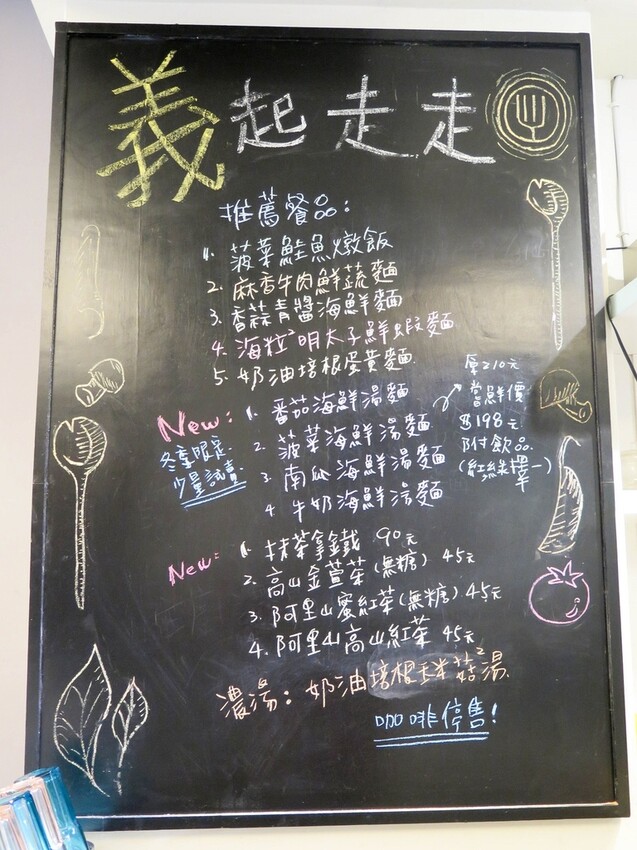 義起走走
推薦餐品：
1. 菠菜鮭魚燉飯
2. 麻香牛肉鮮蔬麵
3. 香蒜青醬海鮮麵
4. 海粒²明太子鮮蝦麵
5. 奶油培根蛋黃麵
New：
冬季限定
少量試賣
1. 番茄海鮮湯麵
2. 菠菜海鮮湯麵
3. 南瓜海鮮湯麵
4. 牛奶海鮮湯麵
原210元
嘗鮮價
$198元
附飲品
(紅綠擇一)
New：
1. 抹茶拿鐵 90元
2. 高山金萱茶(無糖) 45元
3. 阿里山蜜紅茶(無糖) 45元
4. 阿里山高山紅茶 45元
濃湯：奶油培根玉米菇²湯
咖啡停售！